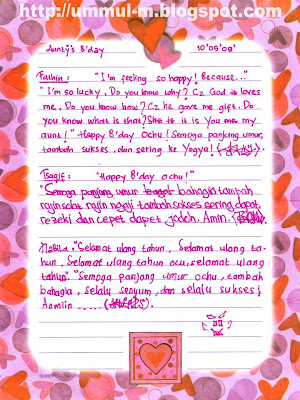 http://ummul-m.blogspot.com
Aunty's B'day 10'09'09'
Fathin: "I'm feeling so happy! Because..."
"I'm so lucky, Do you know why? Cz God is loves
me, Do you know how? Cz he gave me gift. Do
you know what is that? It is you my
aunt!" Happy B'day Ochu! Semoga panjang umur,
tambah sukses, dan sering ke Yogya!
"Happy B'day ochu!"
"Semoga panjang umur bahagia tambah
rajin salat rajin ngaji tambah sukses sering dapat
rezeki dan cepet dapet jodoh. Amin.
Nabila: "Selamat ulang tahun, Selamat ulang ta-
hun, Selamat ulang tahun ocu, selamat ulang
tahun." "Semoga panjang umur ochu, tambah
bahagia, selalu senyum, dan selalu sukses!
Aamiin .....